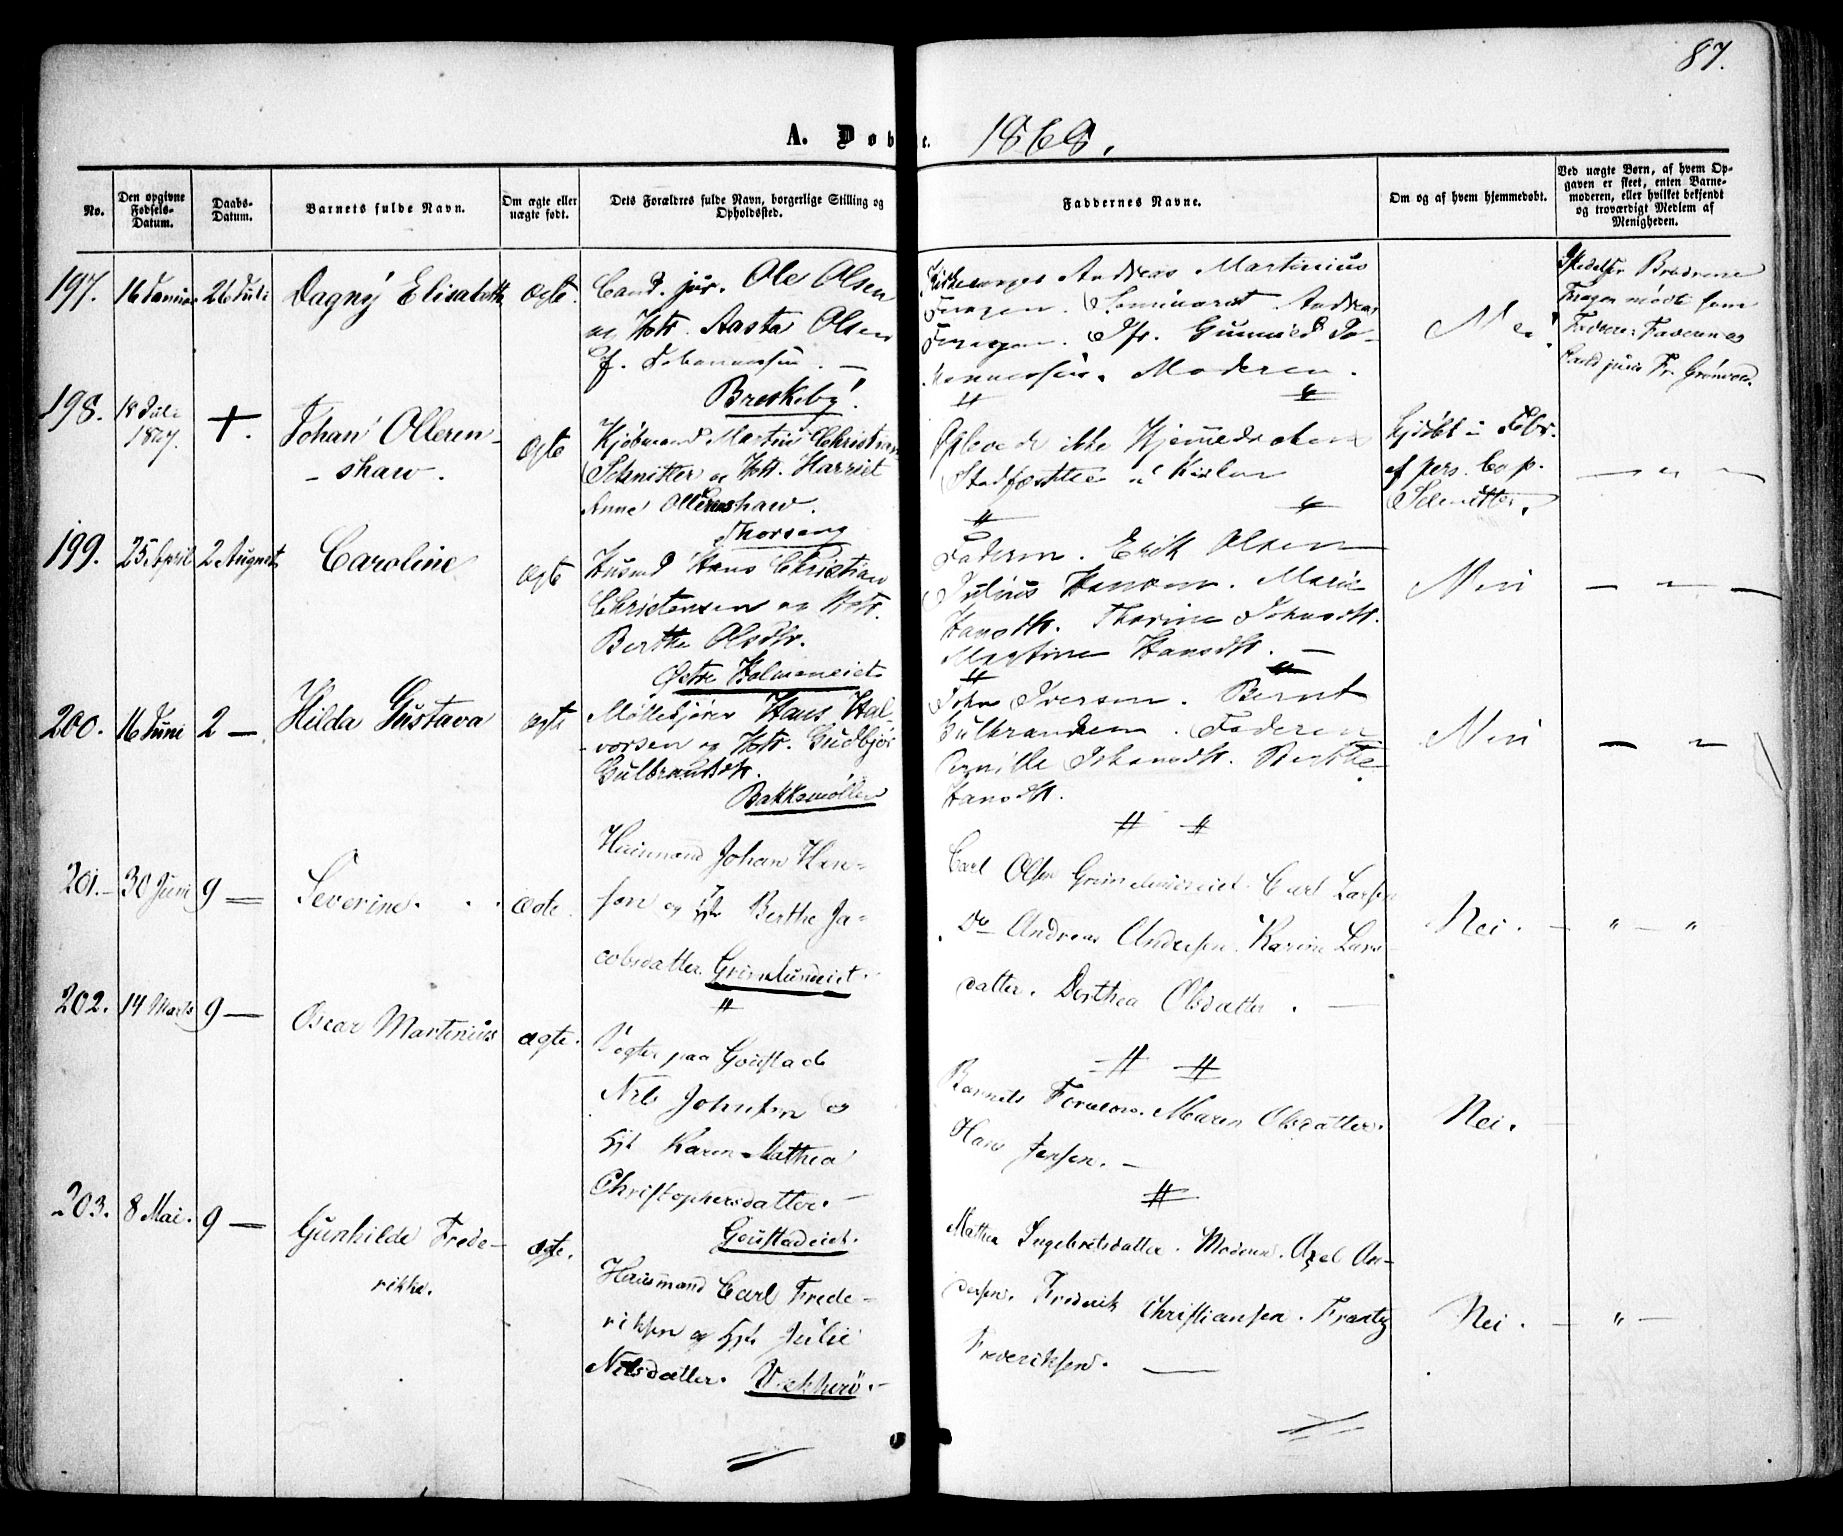 87.
A. Døbte. 1868.
No.
Den opgivne Fødsels-Datum.
Daabs-Datum.
Barnets fulde Navn.
Om ægte eller uægte født.
Dets Forældres fulde Navn, borgerlige Stilling og Opholdssted.
Faddernes Navne.
Om og af hvem hjemmedøbt.
Ved uægte Børn, af hvem Opgaven er skeet, enten Barnemoderen, eller hvilket bekjendt og troværdigt Medlem af Menigheden.
197. 16 Januar 26 Juli Dagny Elisabeth ægte.
Cand. jur. Ole Olsen
og Hstr. Aasta Olsen
f. Johannessen. —
Breskeby.
Andreas Martinius
Seminarist Andreas
Moderen.
Nei
Brødrene
som
198. 18 Juli 1827. +. Johan Olleren-
-shaw. ægte
Kjøbmand Martin Christian
Schnitter og Hstr. Harriet
Anne Ollerenshaw.
Thorseng
ikke Hjemmedaaben
Stadfæstte i Kirken
Febr.
af pers. Cap.
Schnitter.
— " —
199. 25 April 2 August Caroline ægte
Husmd Hans Christian
Christensen og Hstr.
Berthe Olsdtr.
Østre Holmeneiet
Faderen. Erik Olsen
Julius Hansen. Marie
Hansdtr. Thorine Johansdtr.
Martine Hansdtr. —
Nei — " —
200. 16 Juni 2 — Hilda Gustava ægte
Møllekjører Hans Hal-
vorsen og Hstr. Gudbjør
Gulbrandsdtr.
Bakkemøllen
John Iversen. Bernt
Gulbrandsen. Faderen
Pernille Johansdtr. Berthe
Hansdtr.
Nei — "
201. 30 Juni 9 — Severine. ægte.
Huusmand Johan Han-
sen og Hst Berthe Ja-
cobsdatter. Grimelundeiet.
Carl Olsen Grimelundeiet. Carl Larsen
Do Andreas Andersen. Karine Lars-
datter. Dorthea Olsdatter. —
Nei. — " — "
202. 14 Marts 9 — Oscar Martinius ægte.
Vogter paa Goustad
Nils Johnsen og
Hst Karen Mathea
Christophersdatter. —
Goustadeiet.
Barnets Forældre. Maren Olsdatter.
Hans Jensen. —
Nei.
203. 8 Mai. 9 — Gunhilde Frede-
rikke. ægte.
Huusmand Carl Frede-
riksen og Hst Julie
Nilsdatter. Vækkerø. —
Mathea Ingebretsdatter. Moderen. Axel An-
dersen. Frederik Christiansen. Frantz
Frederiksen. —
Nei. — " —